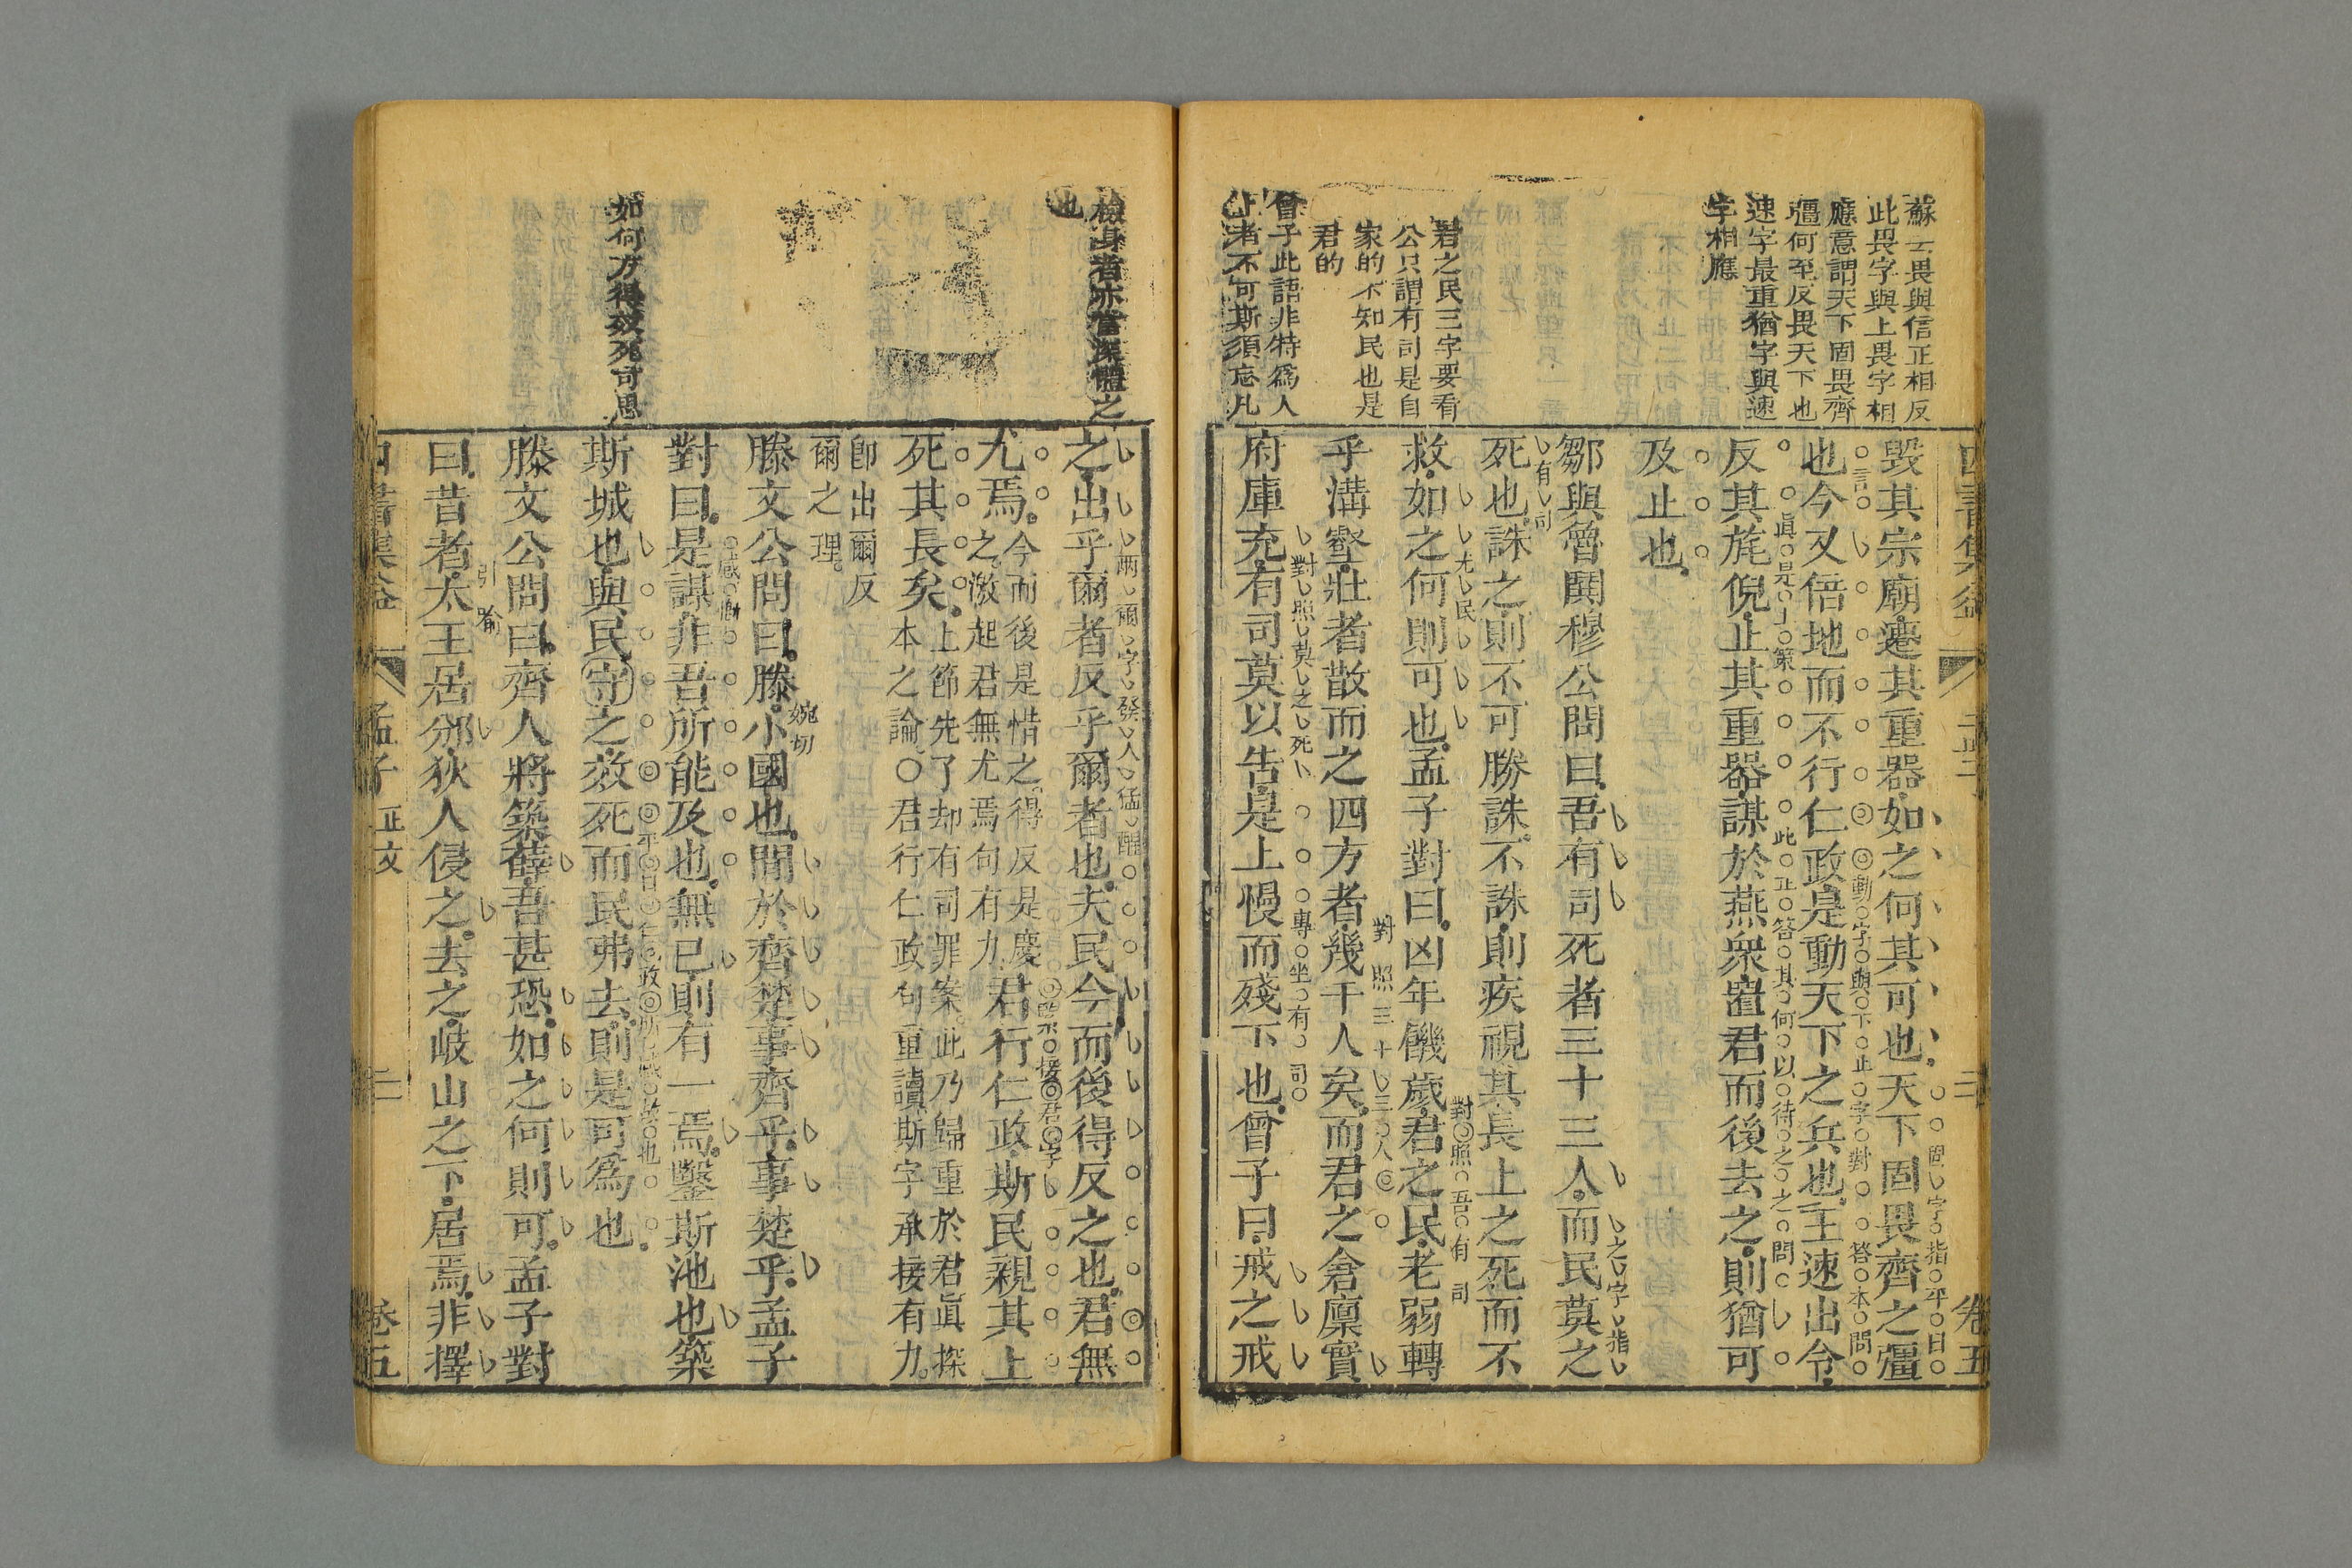 蘇云畏與信正相反
此畏字與上畏字相
應意謂天下固畏齊
彊何至反畏天下也
速字最重猶字與速
字相應
君之民三字要看
公只謂有司是自
家的不知民也是
君的
曾子此語非特爲人
上者不可斯須忘凡
毀其宗廟遷其重器如之何其可也天下固畏齊之彊
固字指平日
也今又倍地而不行仁政是動天下之兵也王速出令
言
動字與下止字對
答本問
反其旄倪止其重器謀於燕衆置君而後去之則猶可
此正答其何以待之之問
及止也
鄒與魯鬨穆公問曰吾有司死者三十三人而民莫之
之字指
有司
死也誅之則不可勝誅不誅則疾視其長上之死而不
救如之何則可也孟子對曰凶年饑歲君之民老弱轉
尤民
對照吾有司
乎溝壑壯者散而之四方者幾千人矣而君之倉廩實
對照三十三人
府庫充有司莫以告是上慢而殘下也曾子曰戒之戒
對照莫之死
專坐有司
卷五
檢身者亦當深體之
也
如何方得效死可思
之出乎爾者反乎爾者也夫民今而後得反之也君無
兩爾字發人猛醒
尤焉今而後是惜之得反是慶
之激起君無尤焉句有力君行仁政斯民親其上
死其長矣上節先了却有司罪案此乃歸重於君眞探
本之論○君行仁政句重讀斯字承接有力
卽出爾反
爾之理
滕文公問曰滕小國也間於齊楚事齊乎事楚乎孟子
婉切
對曰是謀非吾所能及也無已則有一焉鑿斯池也築
斯城也與民守之效死而民弗去則是可爲也
滕文公問曰齊人將築薛吾甚恐如之何則可孟子對
曰昔者太王居邠狄人侵之去之岐山之下居焉非擇
引喻
孟子 正文
二
卷五